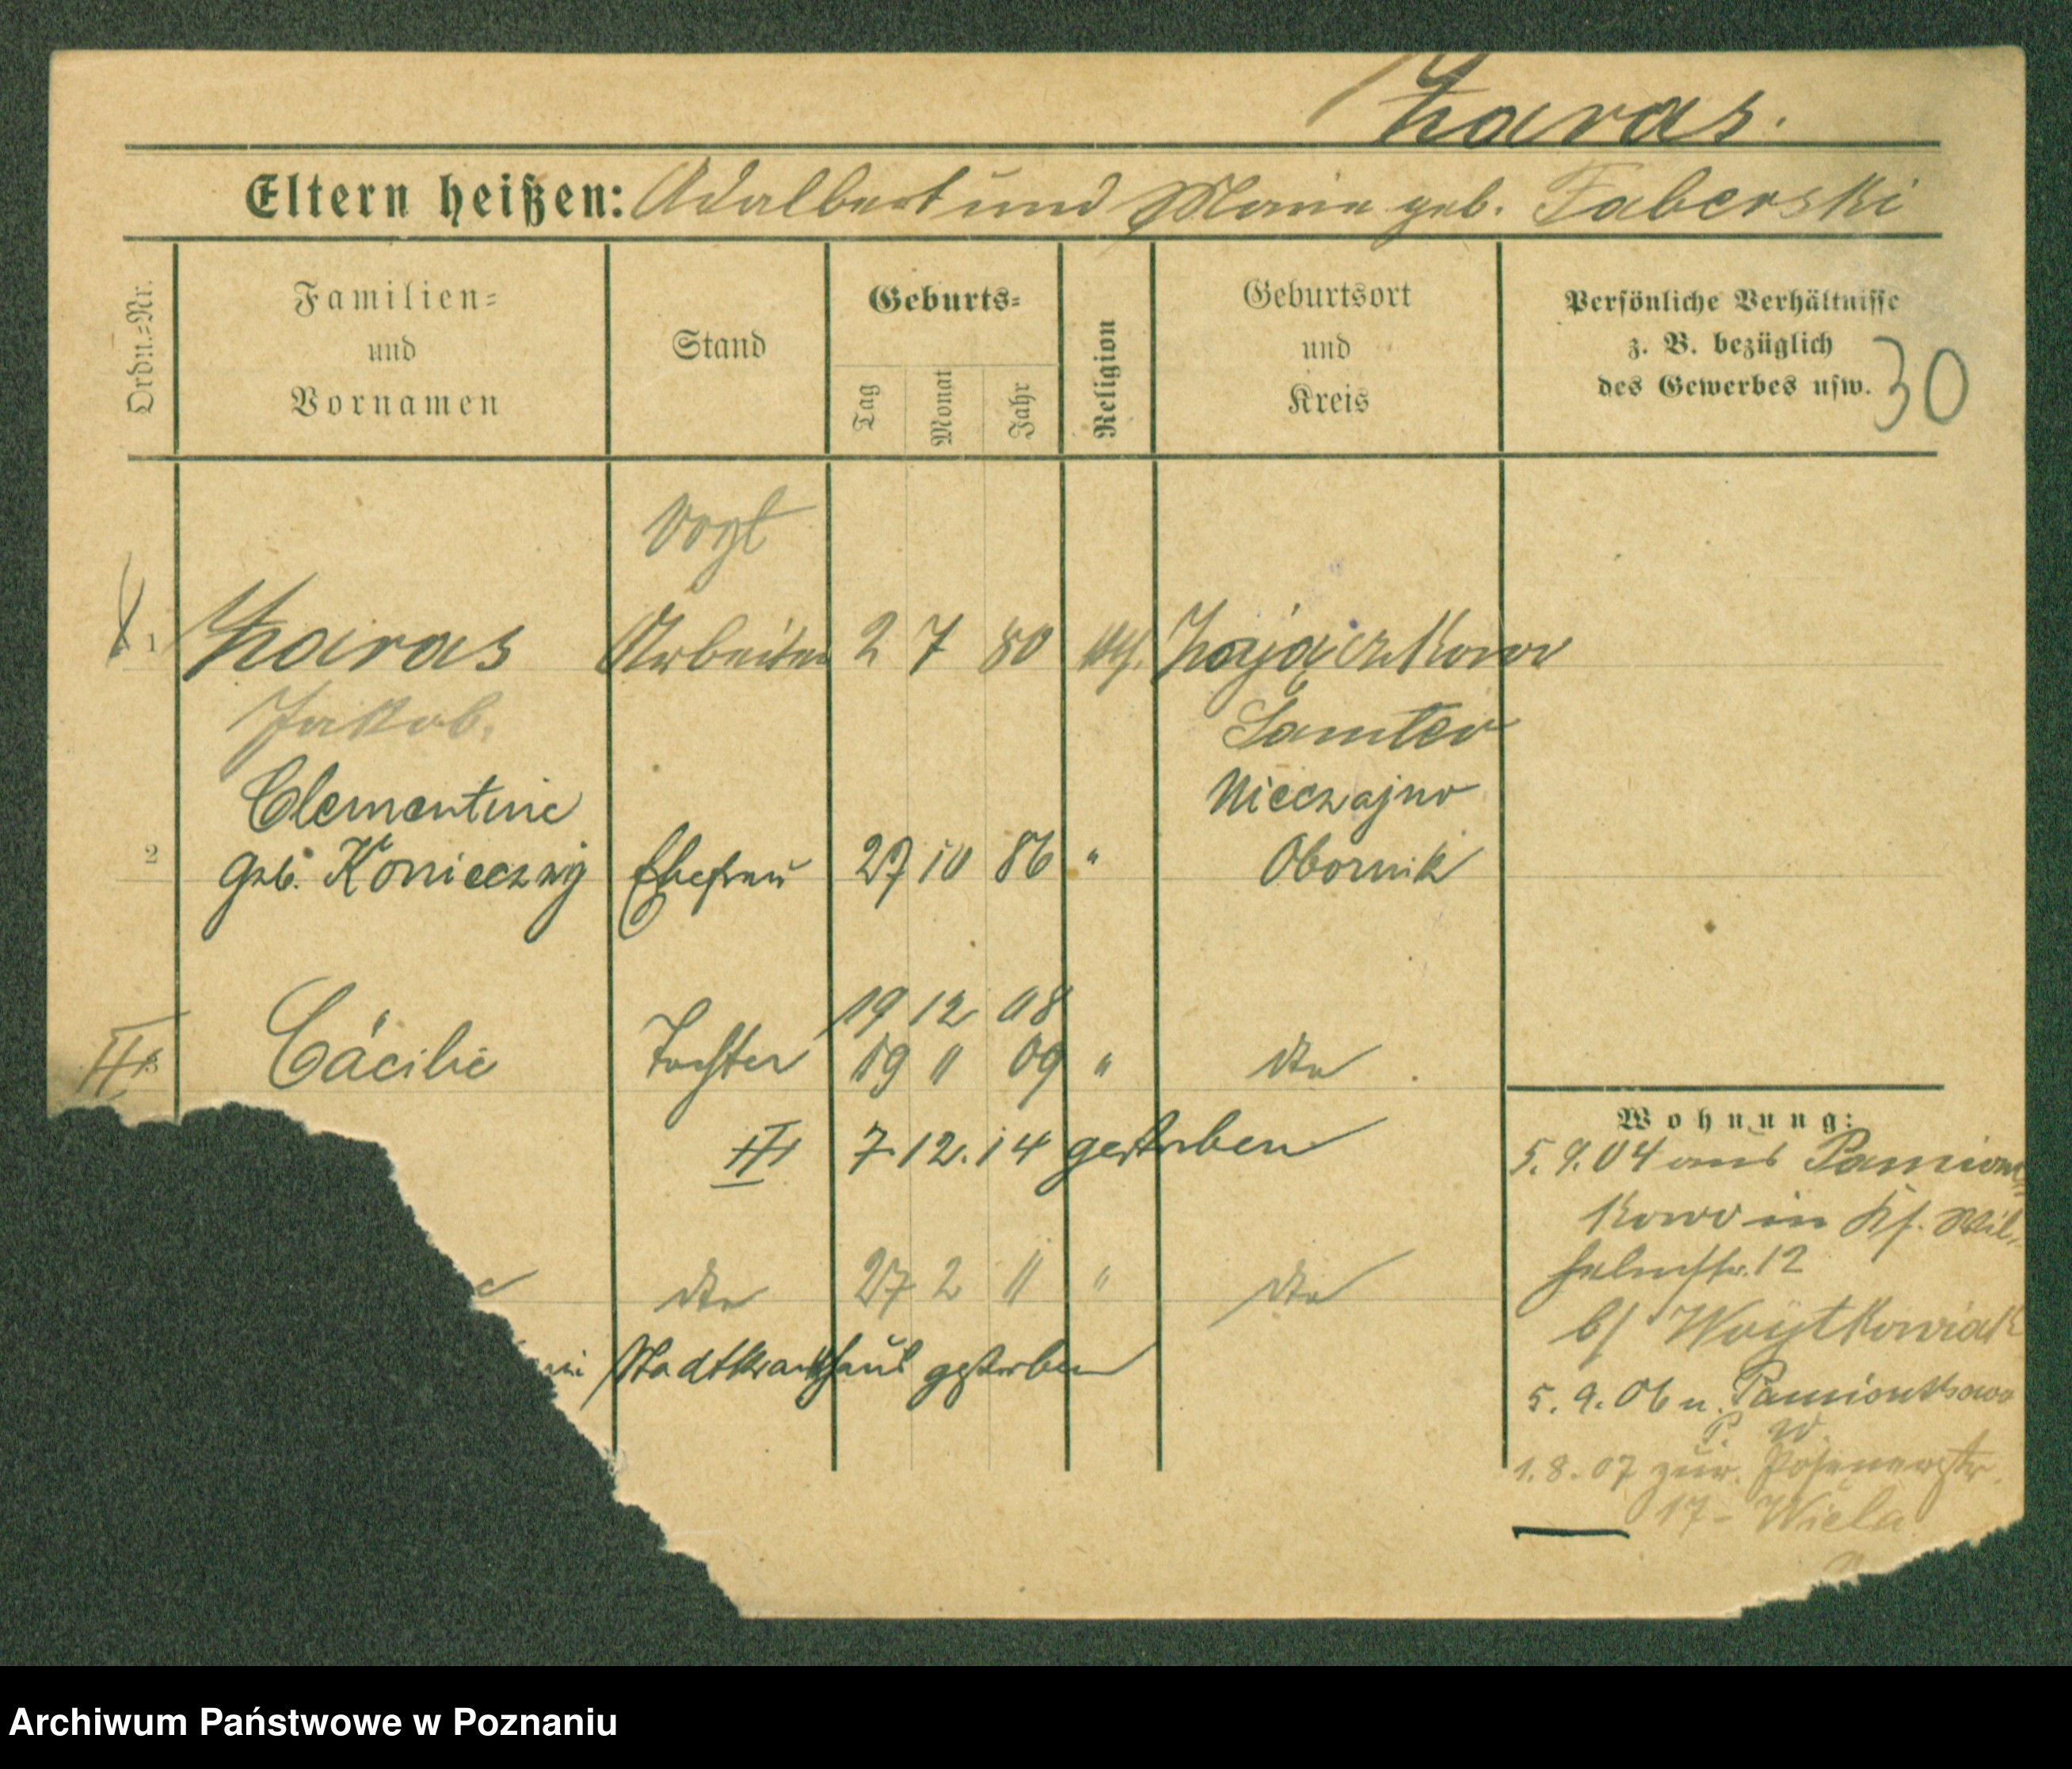 Haras.
Eltern heißen: Adalbert und Marie geb. Faberski
Ordn.=Nr.
Familien=
und
Vornamen
Stand
Geburts=
Tag
Monat
Jahr
Religion
Geburtsort
und
Kreis
Persönliche Verhältnisse
z. B. bezüglich
des Gewerbes usw.
30
Vogt
1 Haras Arbeiter 2 7 80 kth.
Jakob. Samter
Clementine Nieczajno
2 geb. Konieczny Ehefrau 27 10 86 " Obornik
19 12 08
3 Cäcilie Tochter 19 11 09 " dto
III 7.12.14 gestorben
dto 27 2 11 " dto
Stadtkrankhaus gestorben
Wohnung:
5.9.04 aus Pamiont
kowo in Kf. Wil-
helmstr. 12
b/ Woytkowiak
5.9.06 n. Pamiontkowo
1.8.07 zur. Posenerstr.
17 -
Archiwum Państwowe w Poznaniu